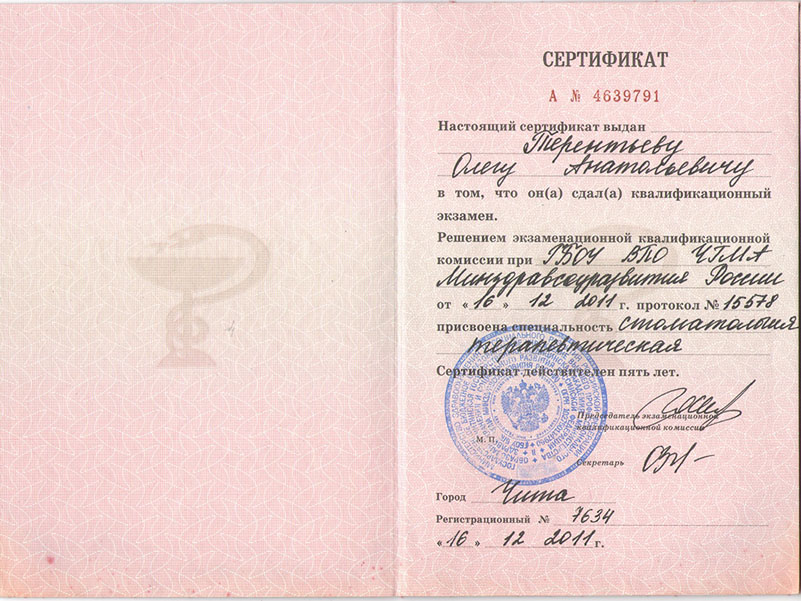 СЕРТИФИКАТ
А № 4639791
Настоящий сертификат выдан
Терентьеву
Олегу Анатольевичу
в том, что он(а) сдал(а) квалификационный
экзамен.
Решением экзаменационной квалификационной
комиссии при ГБОУ ВПО ЧГМА
Минздравсоцразвития России
от «16» 12 2011 г. протокол № 15578
присвоена специальность стоматология
терапевтическая
Сертификат действителен пять лет.
Председатель экзаменационной
квалификационной комиссии
М. П.
Секретарь
Город Чита
Регистрационный № 7634
«16» 12 2011 г.